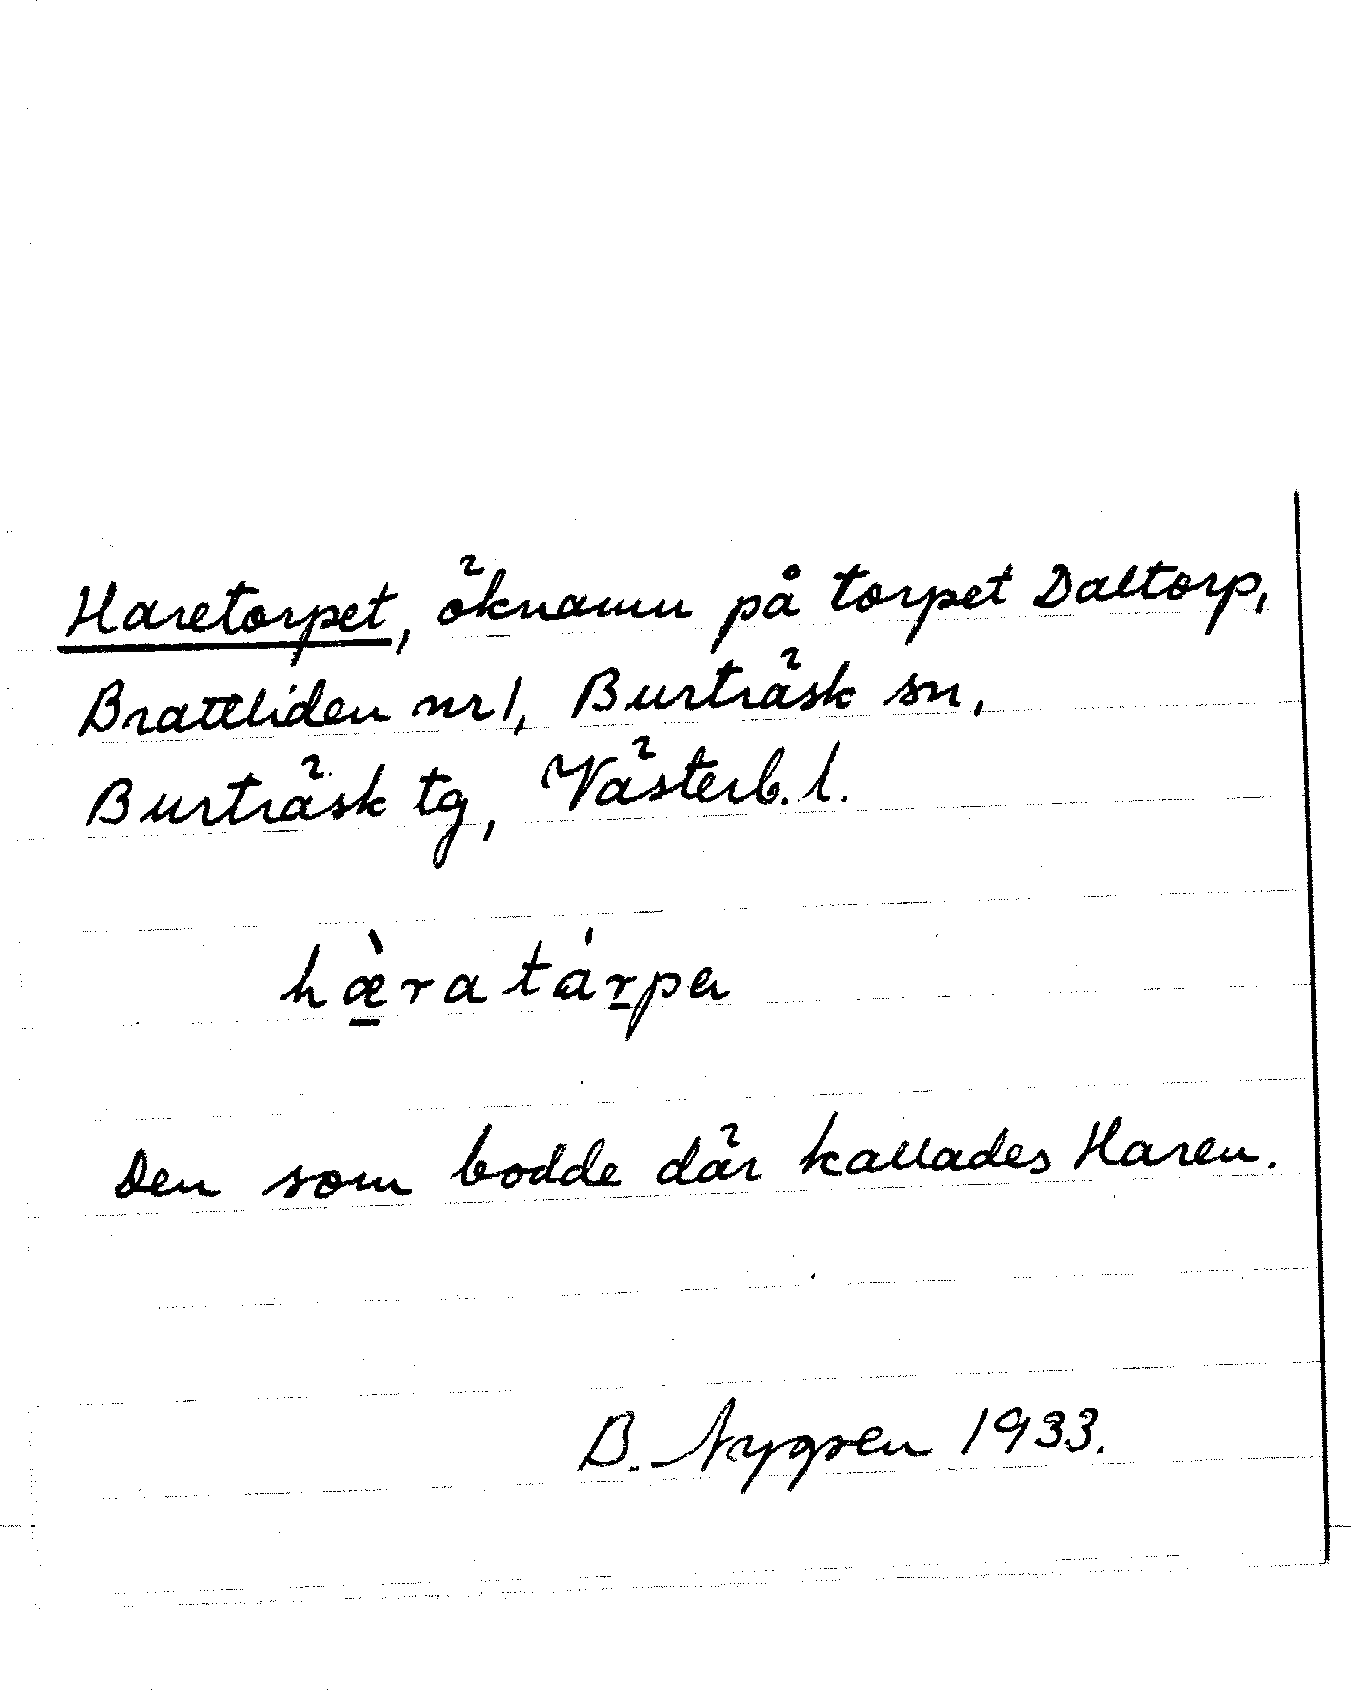 Haretorpet, öknamn på torpet Daltorp,
Brattliden nr 1, Burträsk sn,
Burträsk tg, Västerb. l.
hæ̱̀ratár̠pa
Den som bodde där kallades Haren.
B. Nygren 1933.